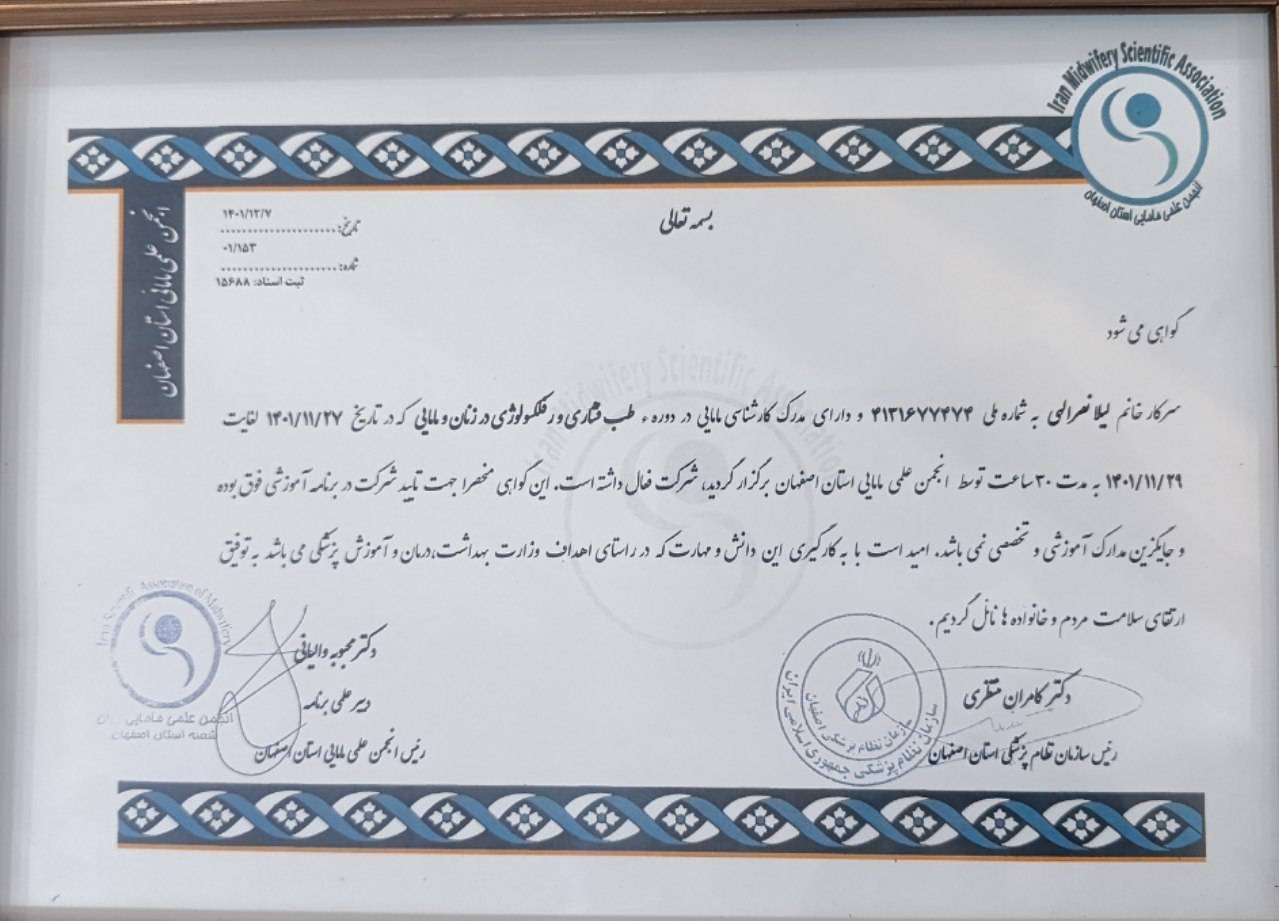 Iran Midwifery Scientific Association
انجمن علمی مامایی استان اصفهان
انجمن علمی مامایی استان اصفهان
بسمه تعالی
تاریخ: ۱۴۰۱/۱۲/۷
شماره: ۰۱/۱۵۳
ثبت اسناد: ۱۵۶۸۸
گواهی می شود
سرکار خانم لیلا نصرالهی به شماره ملی ۴۱۳۱۶۷۷۴۷۴ و دارای مدرک کارشناسی مامایی در دوره ء طب فشاری و رفلکسولوژی در زنان و مامایی که در تاریخ ۱۴۰۱/۱۱/۲۷ لغایت
۱۴۰۱/۱۱/۲۹ به مدت ۳۰ ساعت توسط انجمن علمی مامایی استان اصفهان برگزار گردید، شرکت فعال داشته است. این گواهی منحصرا جهت تایید شرکت در برنامه آموزشی فوق بوده
و جایگزین مدارک آموزشی و تخصصی نمی باشد. امید است با به کارگیری این دانش و مهارت که در راستای اهداف وزارت بهداشت،درمان و آموزش پزشکی می باشد به توفیق
ارتقای سلامت مردم و خانواده ها نائل گردیم.
دکتر کامران منتظری
رئیس سازمان نظام پزشکی استان اصفهان
سازمان نظام پزشکی جمهوری اسلامی ایران
سازمان نظام پزشکی اصفهان
دکتر محبوبه والیانی
دبیر علمی برنامه
رئیس انجمن علمی مامایی استان اصفهان
Iran Scientific Association of Midwifery
انجمن علمی مامایی
شعبه استان اصفهان
Iran Midwifery Scientific Association